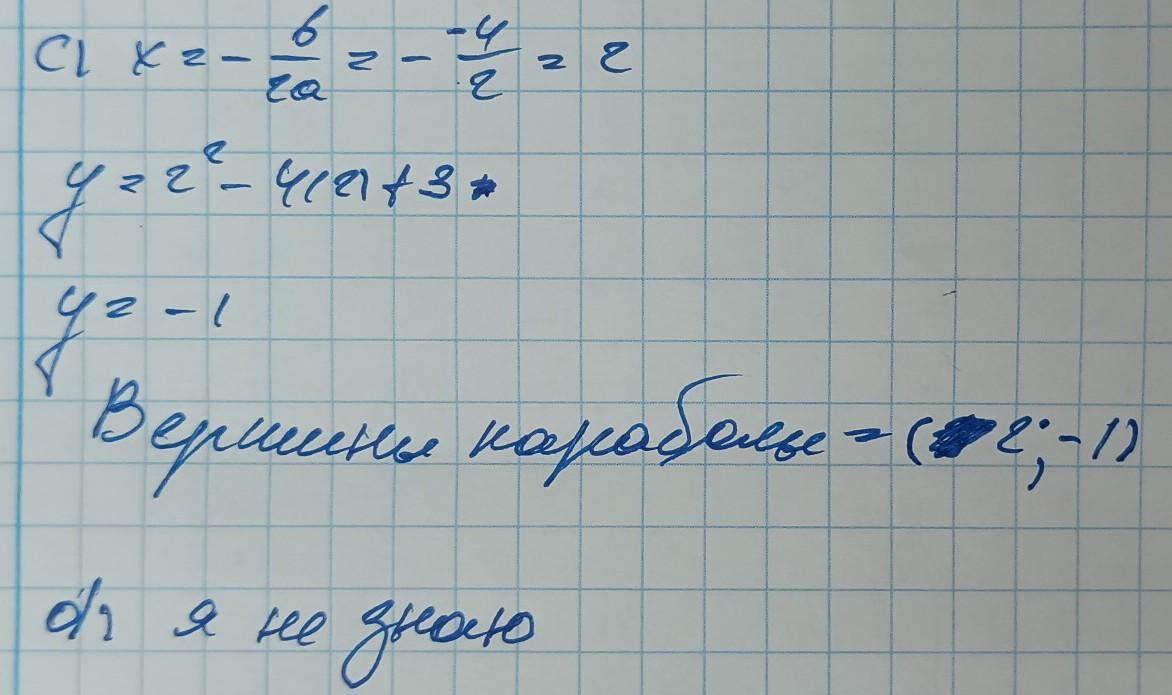 c) x = - b/2a = - -4/2 = 2
y = 2² - 4(2) + 3
y = -1
Вершины параболы = (2; -1)
d) я не знаю